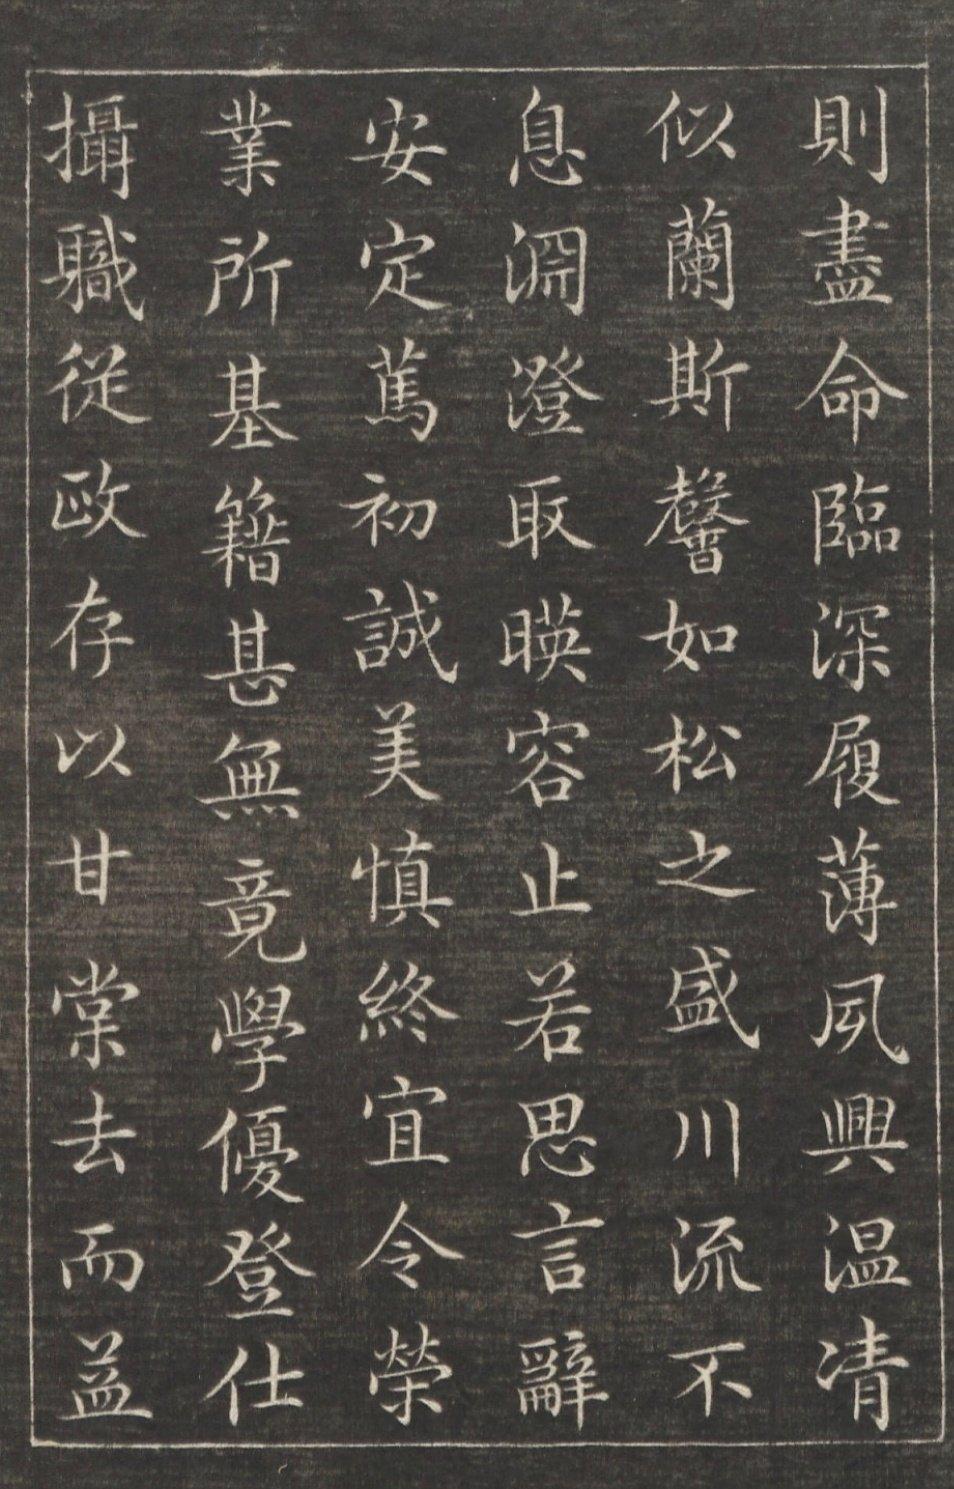 則盡命臨深履薄夙興温凊
似蘭斯馨如松之盛川流不
息淵澄取暎容止若思言辭
安定篤初誠美慎終宜令榮
業所基籍甚無竟學優登仕
攝職從政存以甘棠去而益